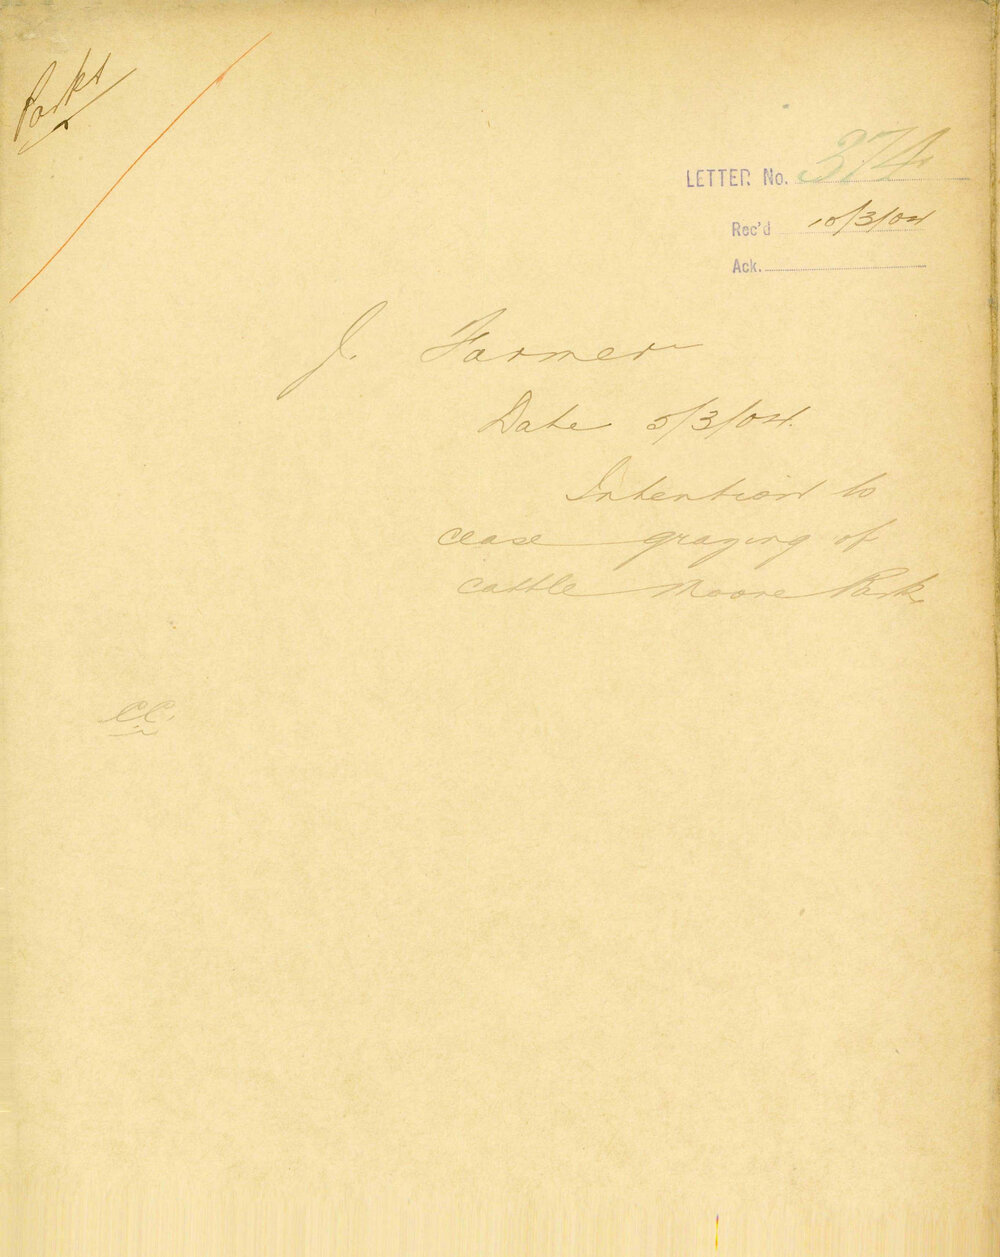 Parks
LETTER No. 374
Rec'd 10/3/04
Ack.
J. Farmer
Date 5/3/04.
Intention to
cease grazing of
cattle Moore Park
CC.